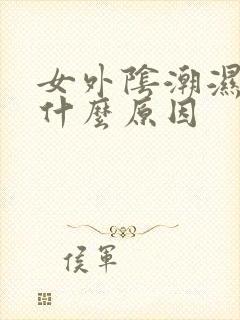 女外陰潮濕
什麼原因
侯軍